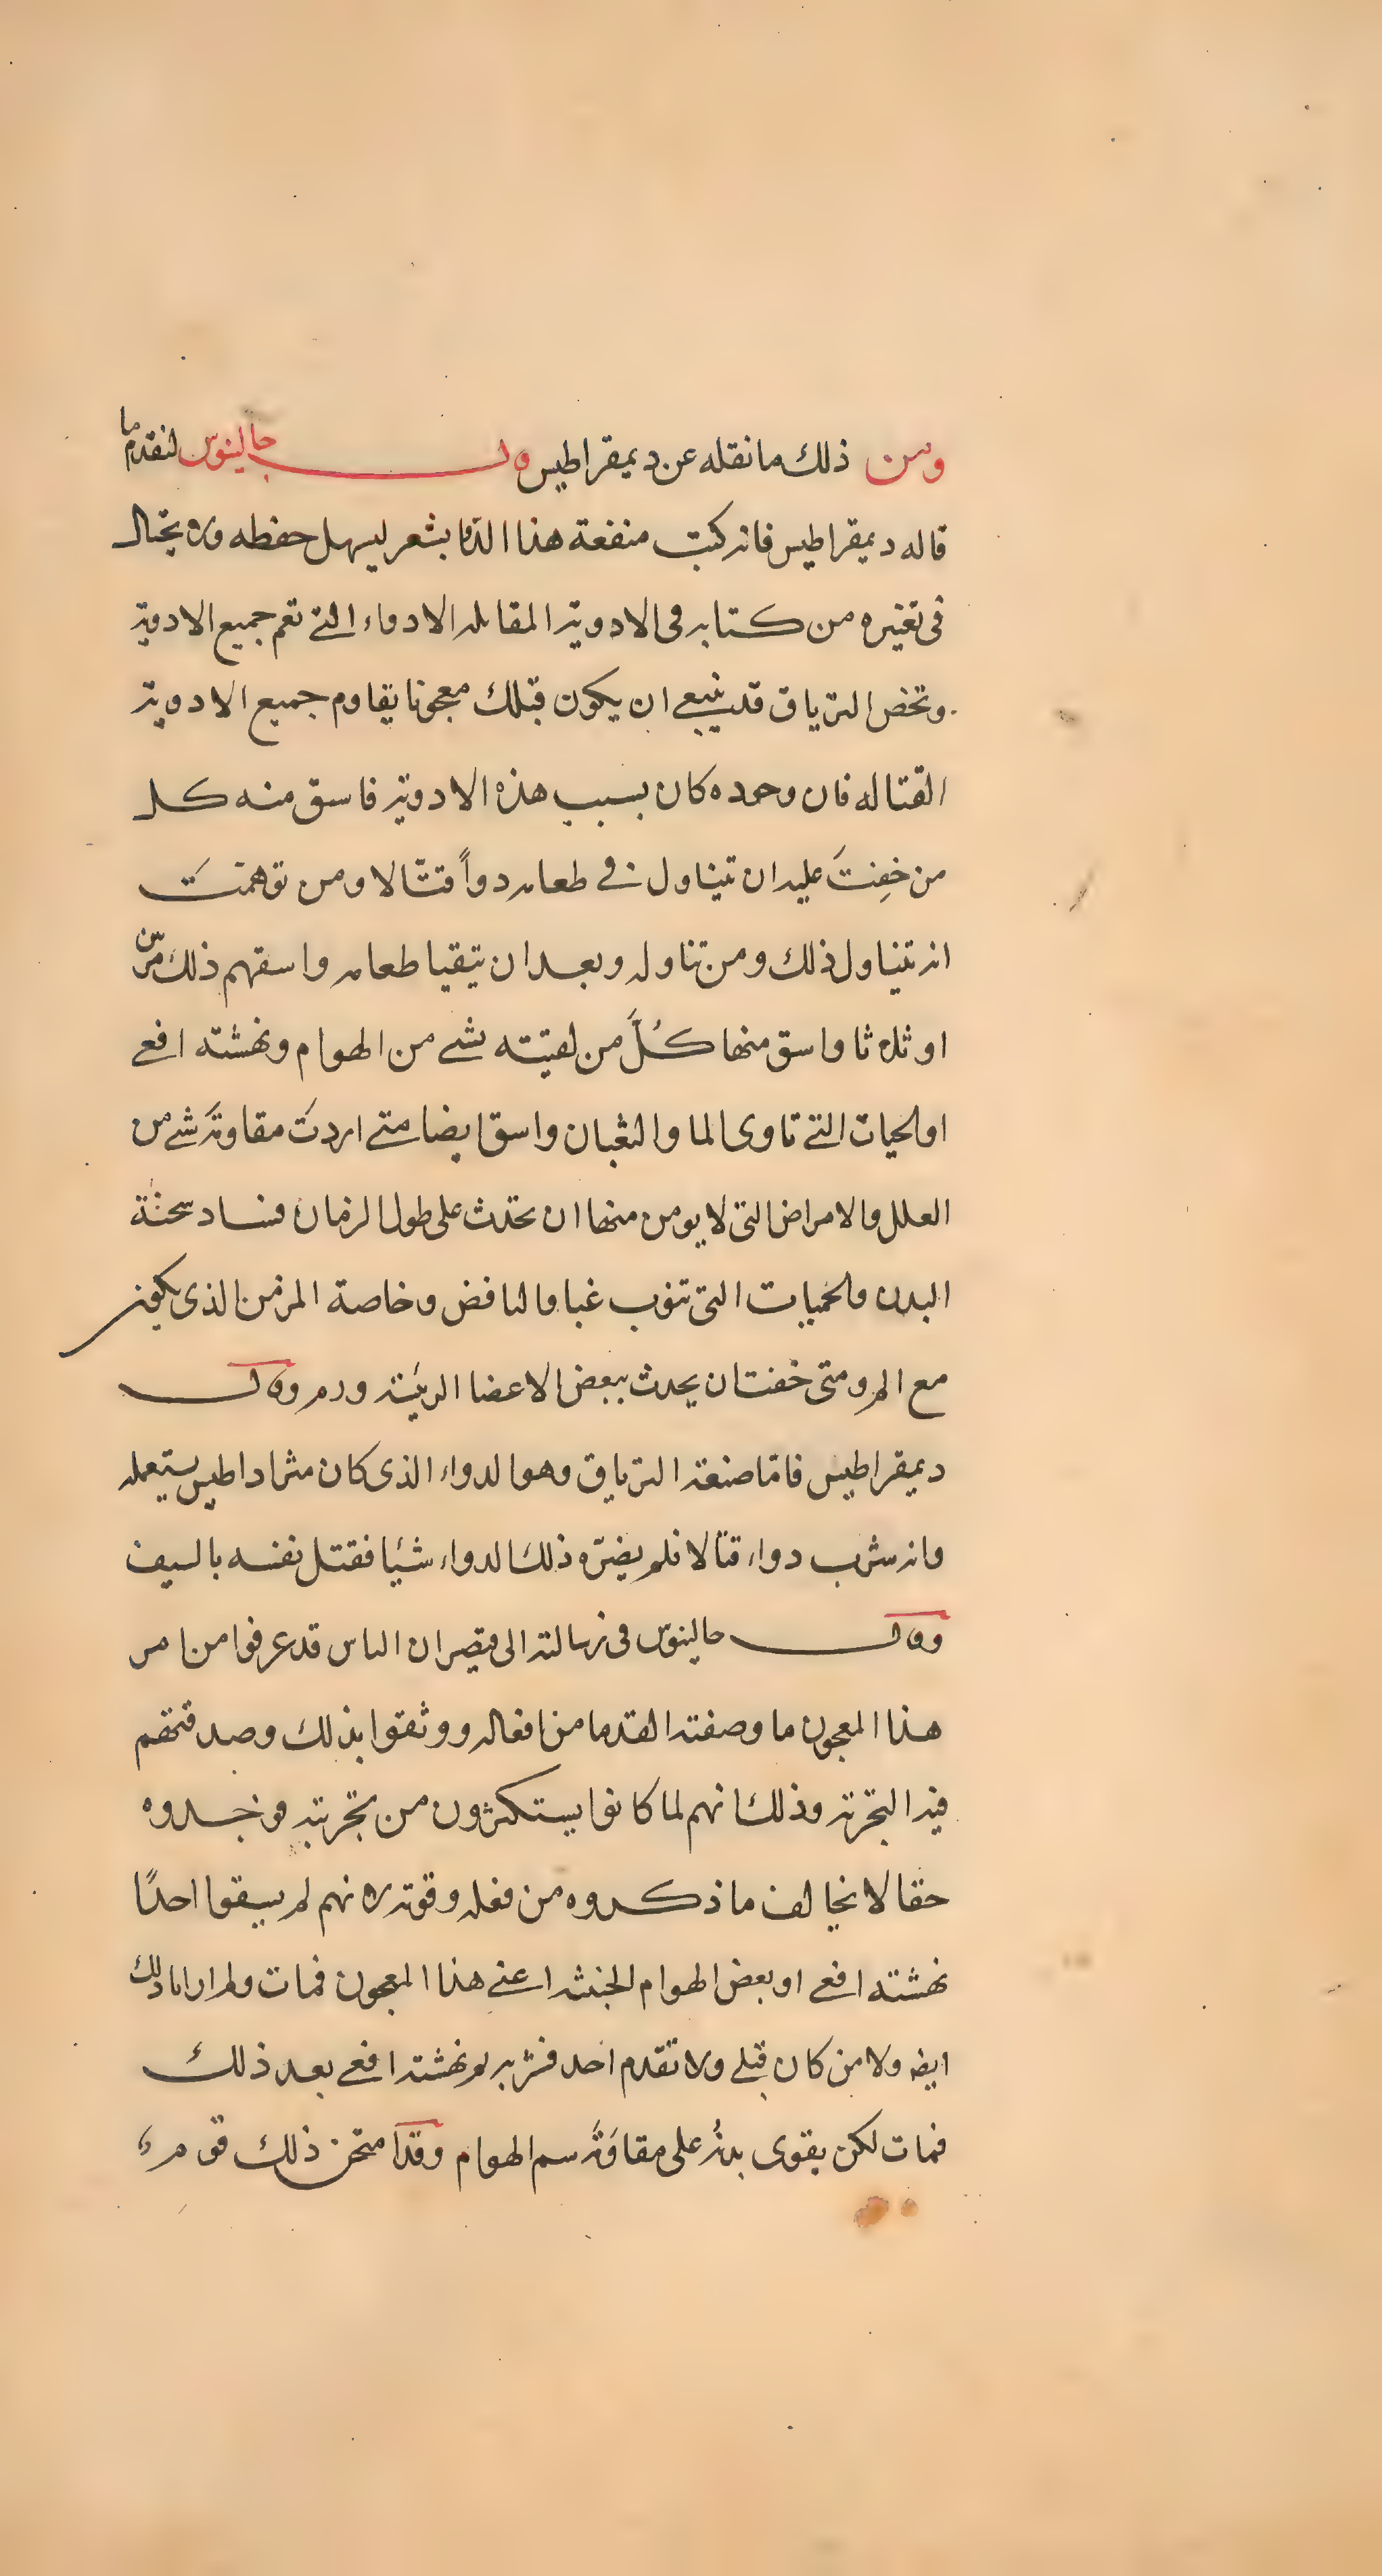 ومن ذلك ما نقله عن ديمقراطيس قال جالينوس لنقدم ما
قاله ديمقراطيس فانه كتب منفعة هذا الدوا بشعر ليسهل حفظه ولا يحتال
فى تغيره من كتابه فى الادوية المقابله الادواء التى تعم جميع الادوية
وتخص الترياق قد ينبغى ان يكون قبلك معجونا يقاوم جميع الادوية
القتاله فان وحده كان بسبب هذه الادوية فاسق منه كل
من خفت عليه ان يتناول فى طعامه دواً قتّالا ومن توهمت
انه يتناول ذلك ومن تناوله وبعد ان يتقيا طعامه واسقهم ذلك مرتين
او ثلاثا واسق منها كلَّ من لقيته شى من الهوام ونهشته افعى
او الحيات التى تاوى الما والثعبان واسق ايضا متى اردت مقاومة شى من
العلل والامراض التى لا يومن منها ان تحدث على طول الزمان فساد سحنة
البدن والحميات التى تنوب غبا والنافض وخاصة المزمن الذى يكون
مع الم ومتى خفت ان يحدث ببعض الاعضا الرئيسة ورم وقال
ديمقراطيس فامّا صنعة الترياق وهو الدواء الذى كان مثراداطيس يستعمله
وانه شرب دواء قتّالا فلم يضرّه ذلك الدواء شيئا فقتل نفسه بالسيف
وقال جالينوس فى رسالته الى قيصر ان الناس قد عرفوا من امر
هذا المعجون ما وصفته القدما من افعاله ووثقوا بذلك وصدقتهم
فيه التجربة وذلك انهم لما كانوا يستكثرون من تجربته فوجدوه
حقا لا يخالف ما ذكروه من فعله وقوته لانهم لم يسقوا احدًا
نهشته افعى او بعض الهوام الخبيثة اعنى هذا المعجون فمات ولم ار انا ذلك
ايضه ولا من كان قبلى ولا تقدم احد فشربه ثم نهشته افعى بعد ذلك
فمات لكن يقوى بدنهُ على مقاومة سم الهوام وقد امتحن ذلك قوم